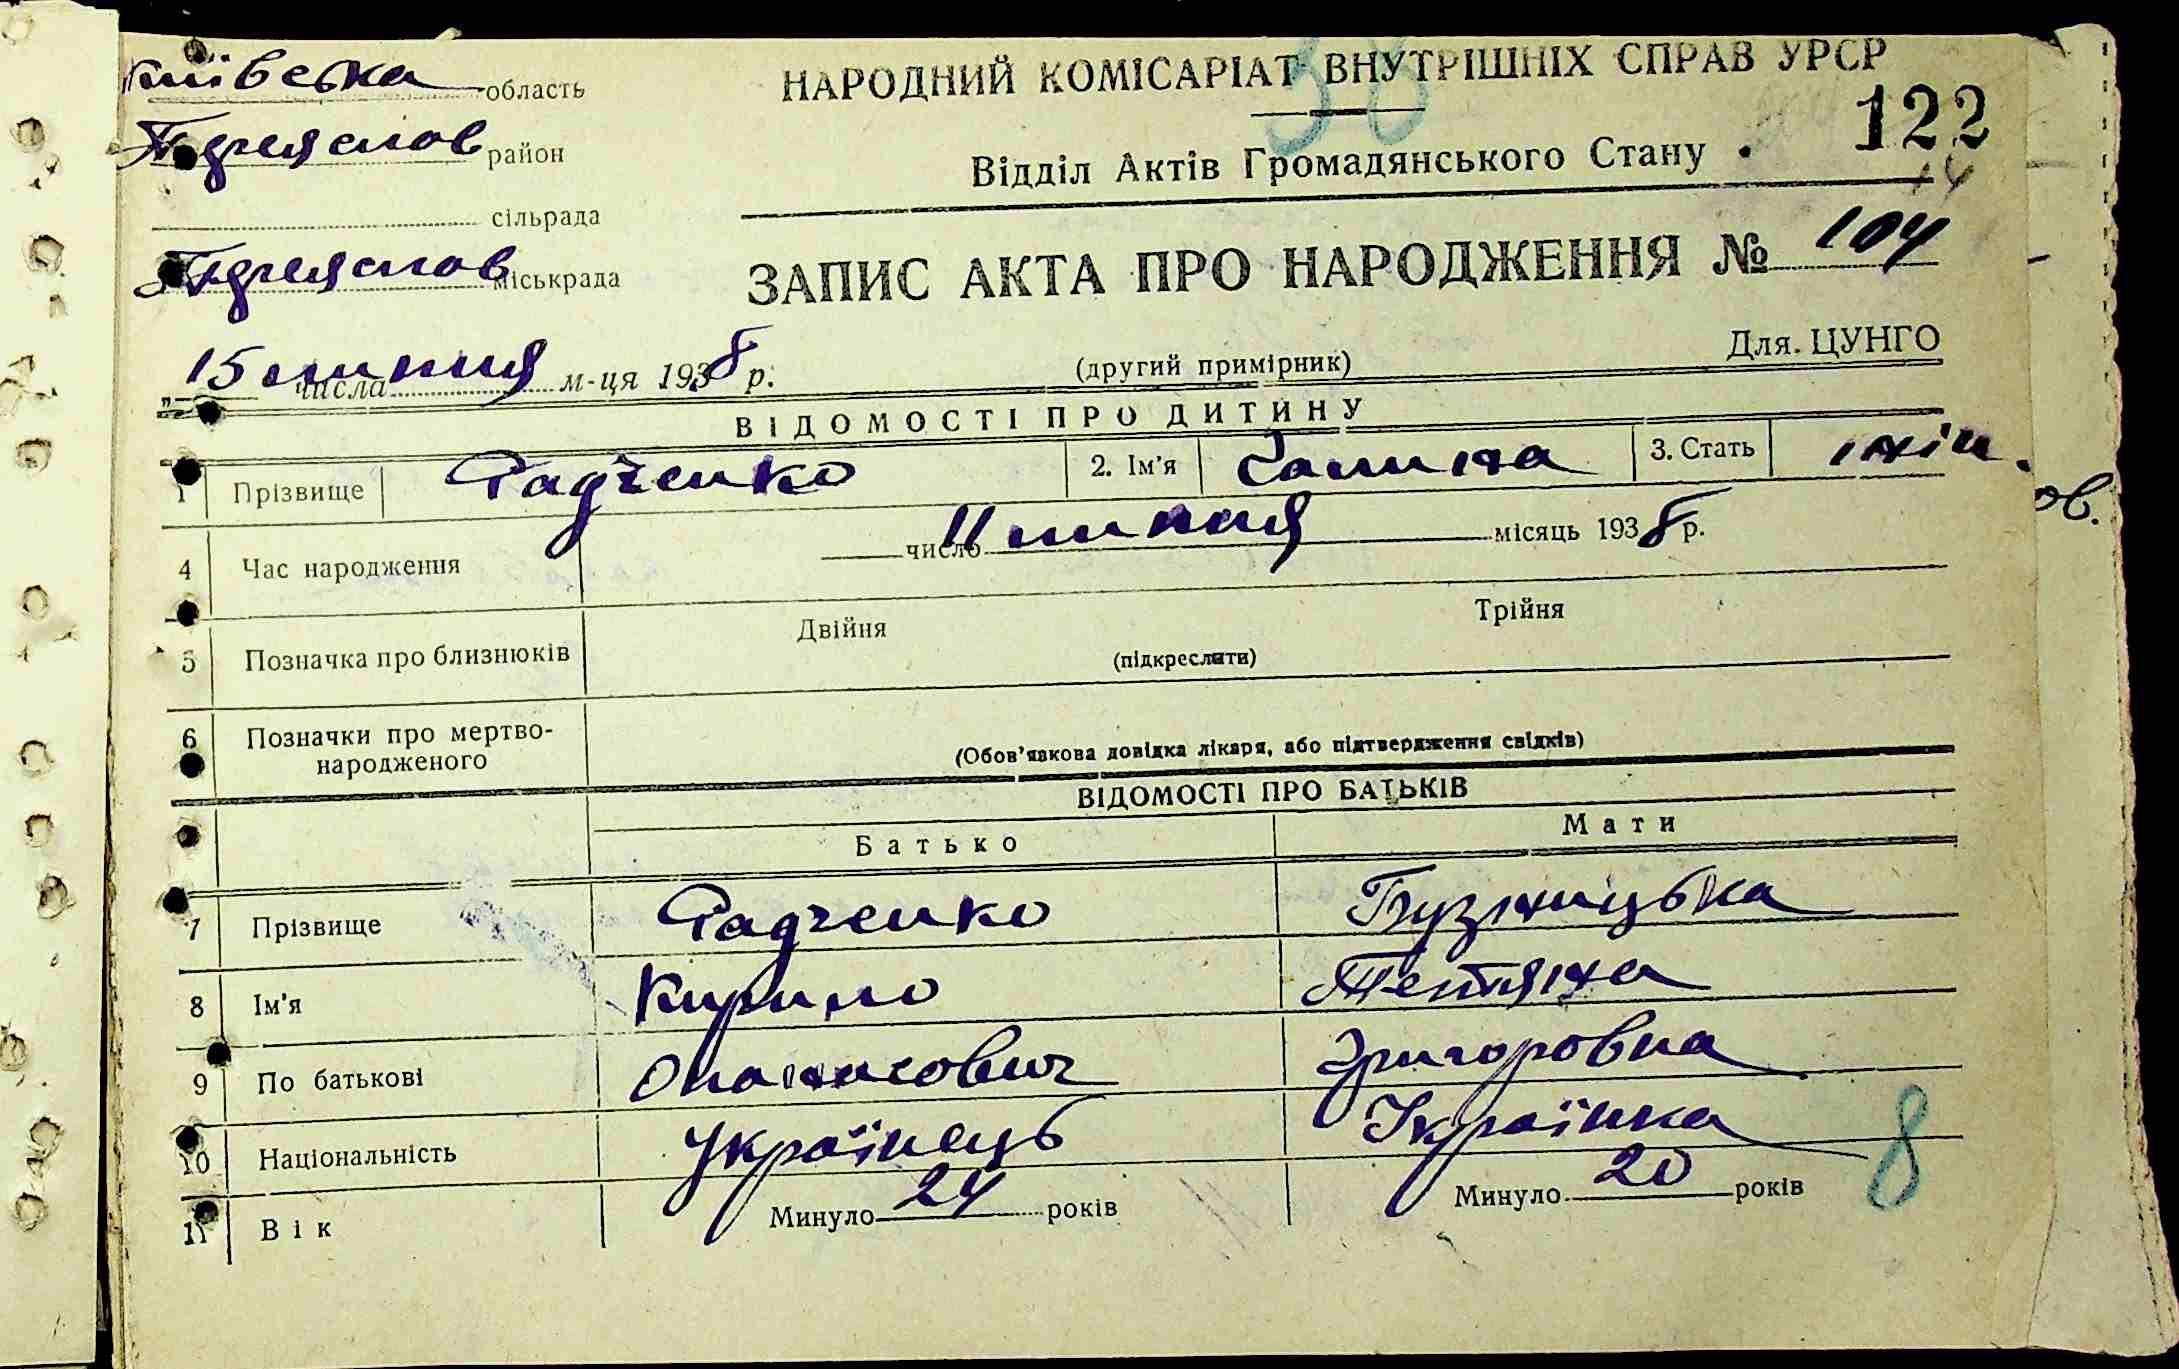 Київська область
НАРОДНИЙ КОМІСАРІАТ ВНУТРІШНІХ СПРАВ УРСР
38
122
Переяслов район
Відділ Актів Громадянського Стану
сільрада
Переяслов міськрада
ЗАПИС АКТА ПРО НАРОДЖЕННЯ № 104
„15 числа липня м-ця 1938 р.
(другий примірник)
Для ЦУНГО
ВІДОМОСТІ ПРО ДИТИНУ
1 Прізвище Радченко 2. Ім'я Галина 3. Стать жін.
ов.
4 Час народження 11 число липня місяць 1938 р.
5 Позначка про близнюків Двійня Трійня
(підкреслити)
6 Позначки про мертво-
народженого
(Обов'язкова довідка лікаря, або підтвердження свідків)
ВІДОМОСТІ ПРО БАТЬКІВ
Батько Мати
7 Прізвище Радченко Грузницька
8 Ім'я Кирило Тетяна
9 По батькові Опанасович Григоровна
10 Національність Українець Українка
8
11 Вік Минуло 24 років Минуло 20 років